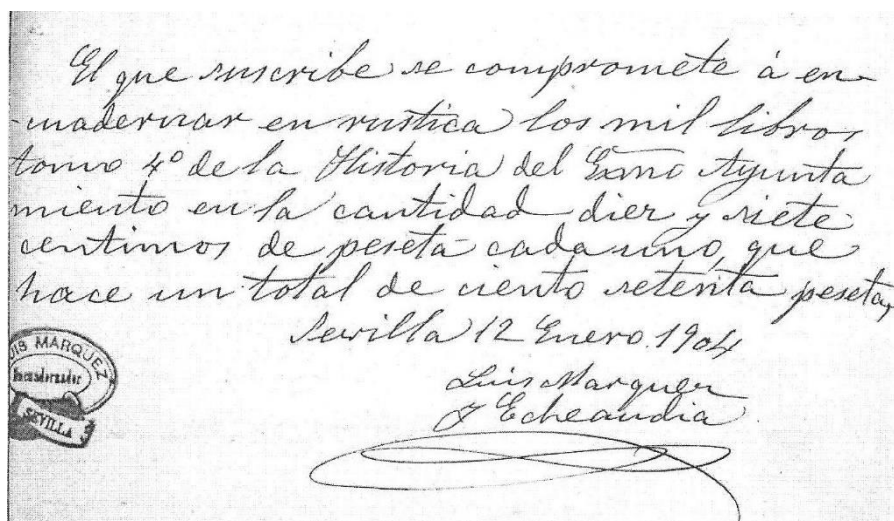 El que suscribe se compromete á en-
cuadernar en rustica los mil libros
tomo 4º de la Historia del Exmo Ayunta
miento en la cantidad diez y siete
centimos de peseta cada uno, que
hace un total de ciento setenta pesetas
Sevilla 12 Enero 1904
Luis Marquez
y Echeandia
UIS MARQUEZ
Encuadernador
SEVILLA